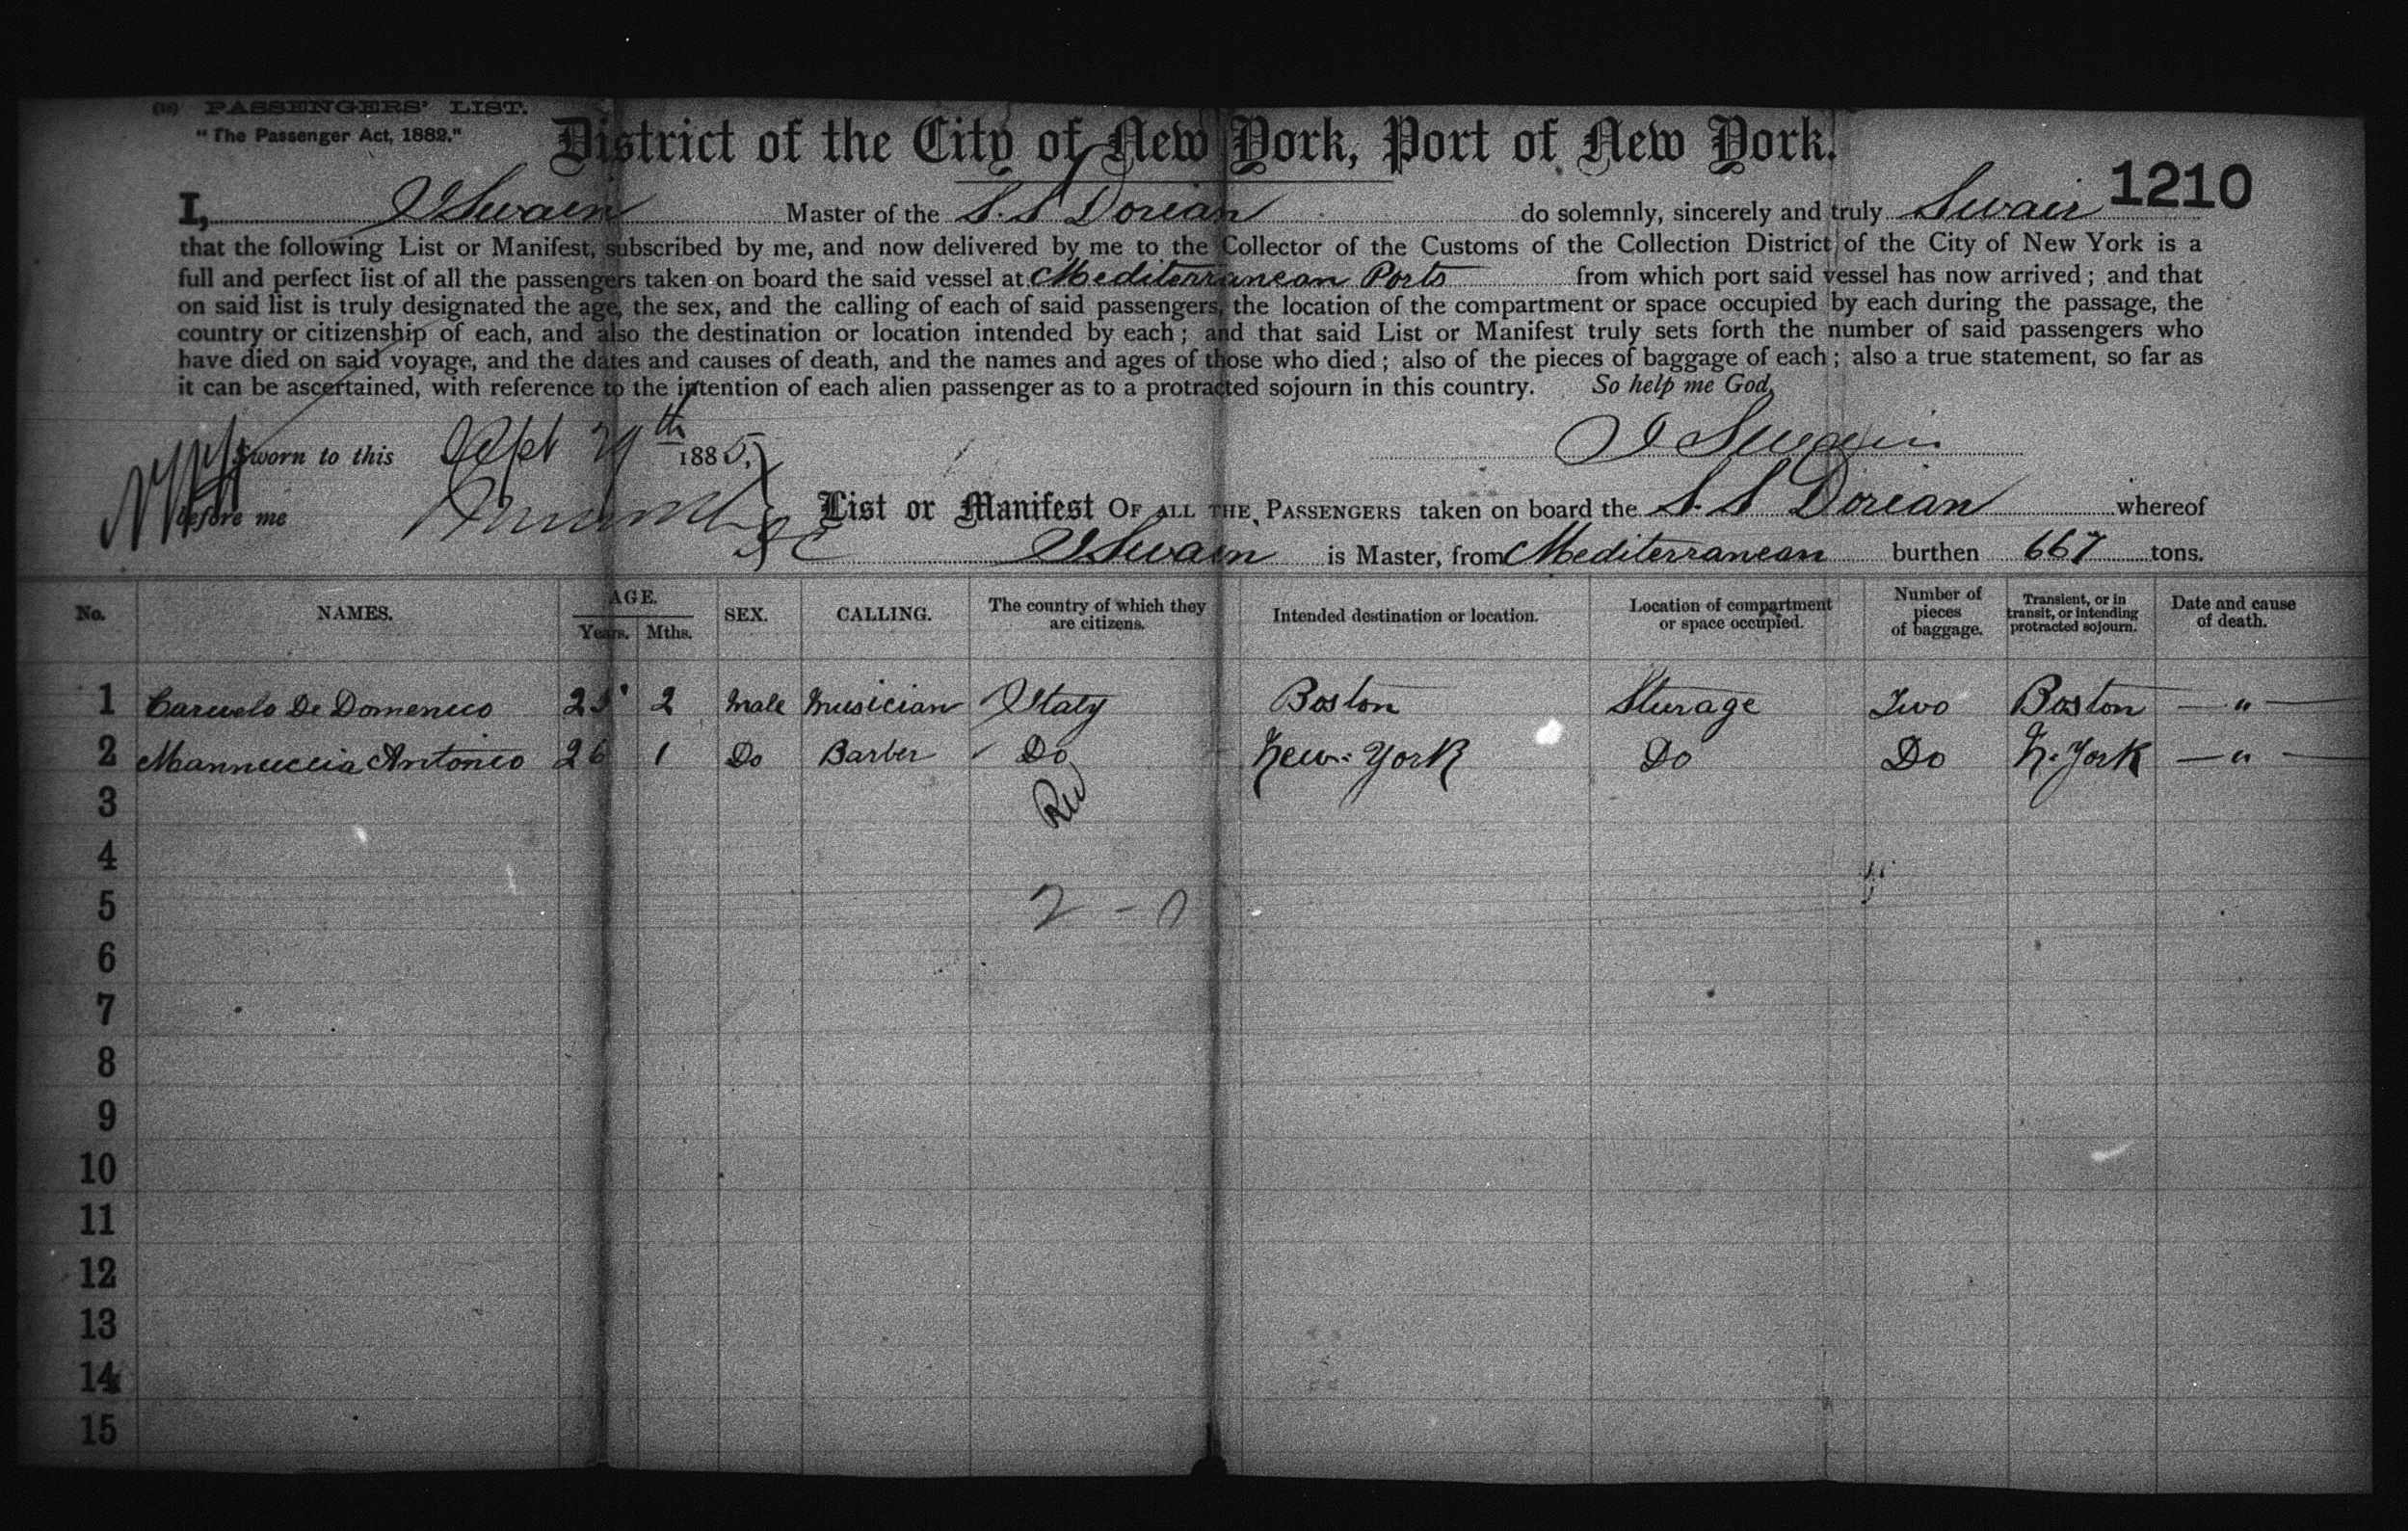 PASSENGERS' LIST.
"The Passenger Act, 1882."
District of the City of New York, Port of New York.
1210
I, J Swain Master of the S. S Dorian do solemnly, sincerely and truly Swair
that the following List or Manifest, subscribed by me, and now delivered by me to the Collector of the Customs of the Collection District of the City of New York is a
full and perfect list of all the passengers taken on board the said vessel at Mediterranean Ports from which port said vessel has now arrived; and that
on said list is truly designated the age, the sex, and the calling of each of said passengers, the location of the compartment or space occupied by each during the passage, the
country or citizenship of each, and also the destination or location intended by each; and that said List or Manifest truly sets forth the number of said passengers who
have died on said voyage, and the dates and causes of death, and the names and ages of those who died; also of the pieces of baggage of each; also a true statement, so far as
it can be ascertained, with reference to the intention of each alien passenger as to a protracted sojourn in this country. So help me God.
Sworn to this Sept 29th 1885,
J Swain
before me
List or Manifest OF ALL THE PASSENGERS taken on board the S. S Dorian whereof
J Swain is Master, from Mediterranean burthen 667 tons.
No. NAMES. AGE. Years. Mths. SEX. CALLING. The country of which they are citizens. Intended destination or location. Location of compartment or space occupied. Number of pieces of baggage. Transient, or in transit, or intending protracted sojourn. Date and cause of death.
1 Caruelo De Domenico 25 2 Male Musician Italy Boston Sturage Two Boston — " —
2 Mannuccia Antonio 26 1 Do Barber Do New-York Do Do N. York — " —
3
4
5 2 - 0
6
7
8
9
10
11
12
13
14
15